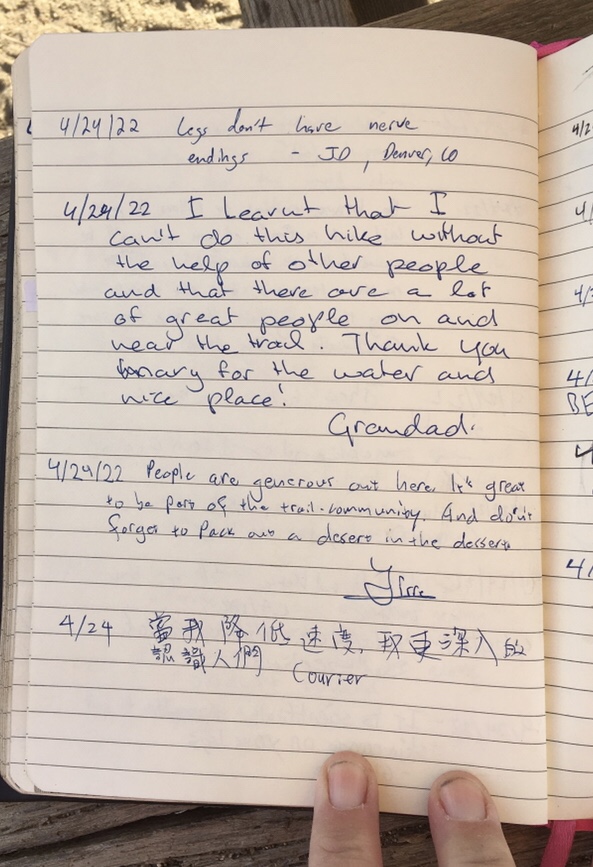 4/24/22 Legs don't have nerve
endings - JD, Denver, CO
4/24/22 I Learnt that I
can't do this hike without
the help of other people
and that there are a lot
of great people on and
near the trail. Thank you
for the water and
nice place!
Grandad.
4/24/22 People are generous out here. It's great
to be part of the trail-community. And don't
forget to Pack out a desert in the dessert.
4/24 當我降低速度，我更深入的
認識人們 Courier
4/2
4/
4/
4/
BE
4/